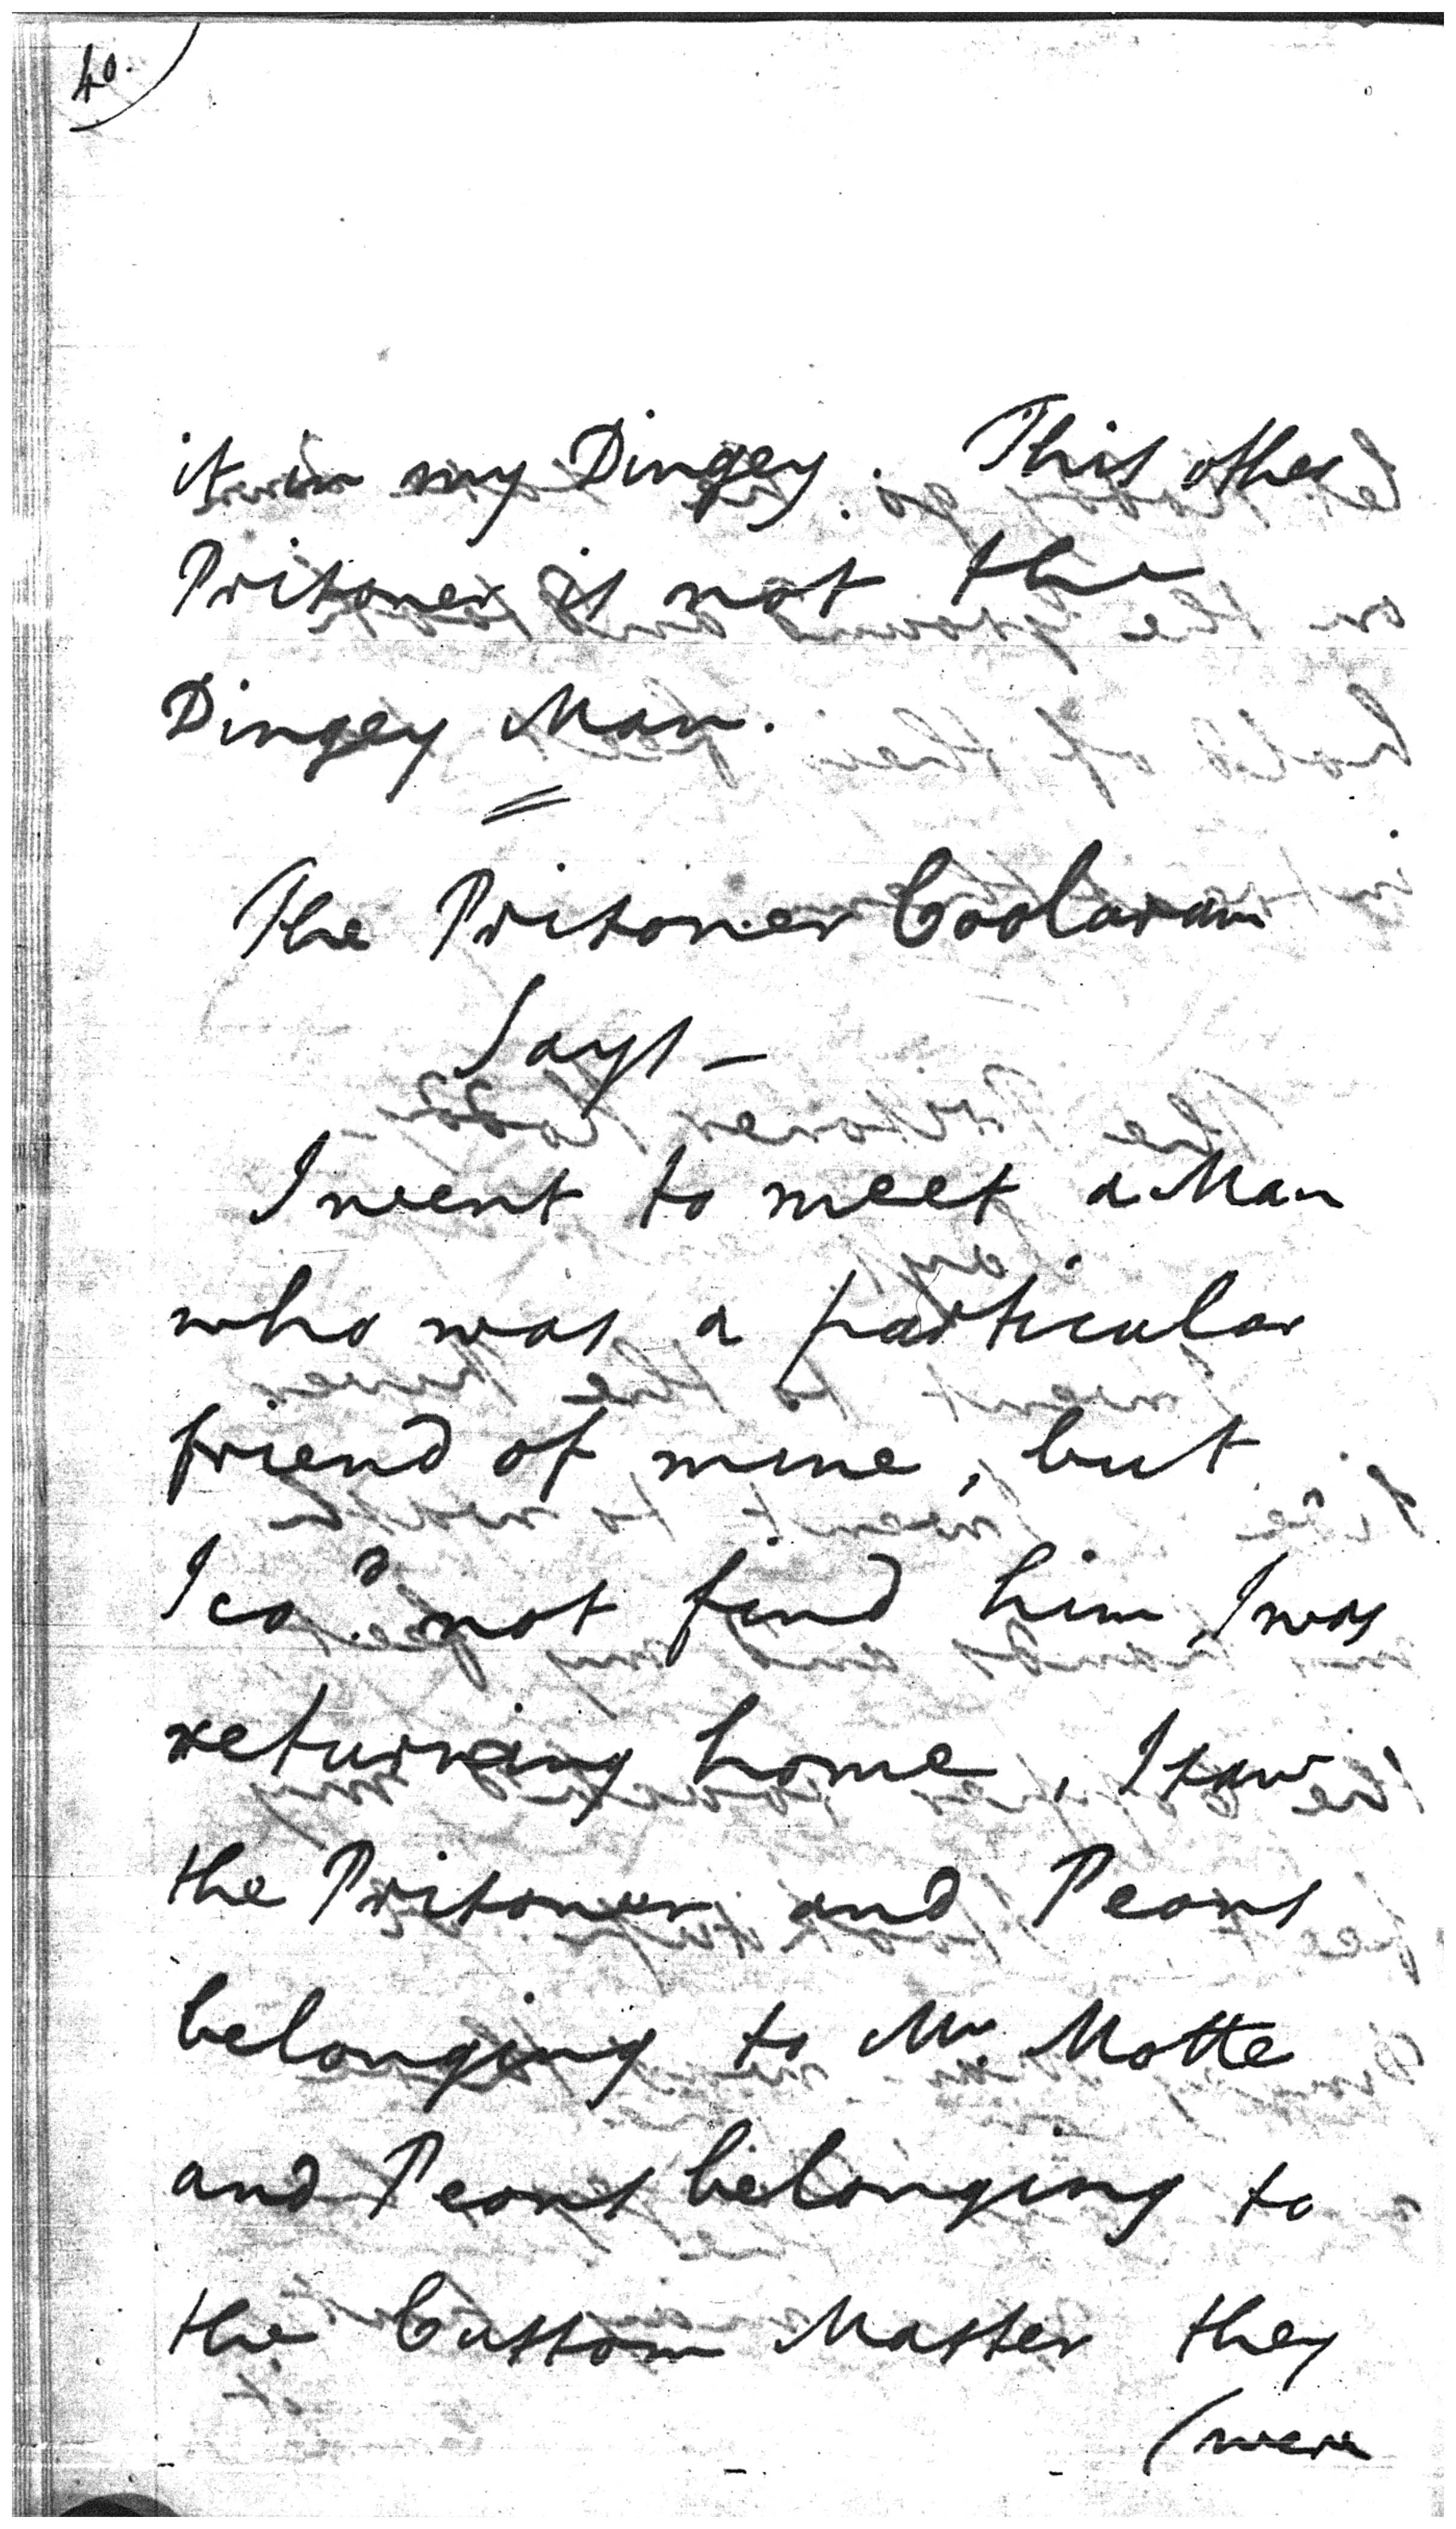 40.
it in my Dingey. This other
Prisoner is not the
Dingey Man.
The Prisoner Coolaram
Says —
I went to meet a Man
who was a particular
friend of mine, but
I co.d not find him, I was
returning home, I saw
the Prisoner and Peons
belonging to Mr. Motte
and Peons belonging to
the Custom Master they
(were